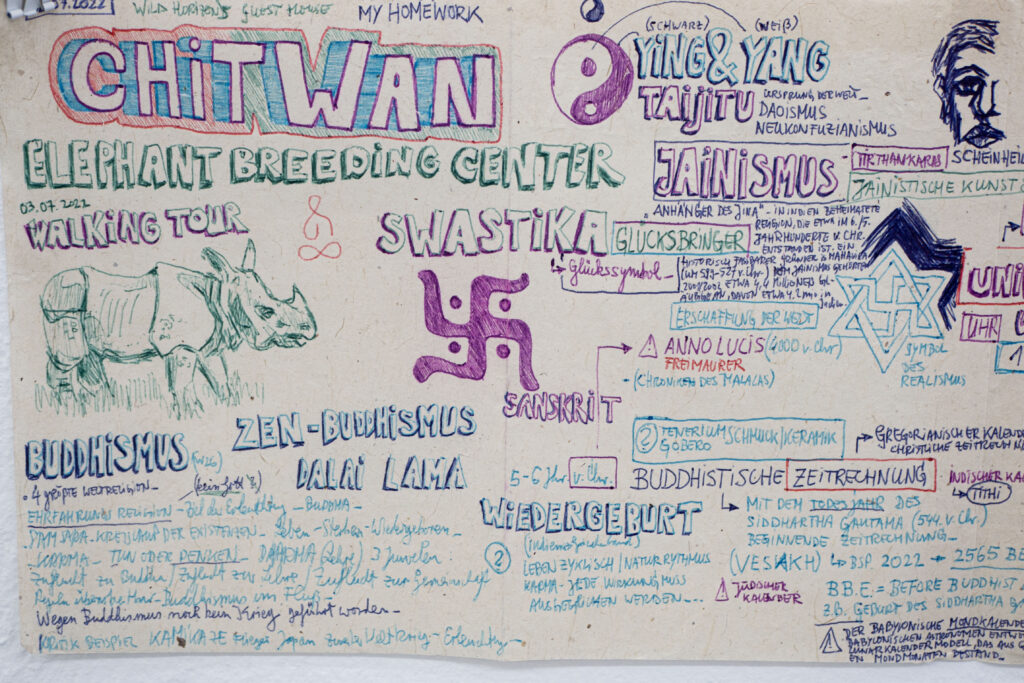 07.2022
WILD HORIZONS GUEST HOUSE
MY HOMEWORK
CHiTWAN
ELEPHANT BREEDING CENTER
03.07.2022
WALKING TOUR
(SCHWARZ) (WEIß)
YiNG & YANG
TAijiTU
URSPRUNG DER WELT –
DAOISMUS
NEUKONFUZIANISMUS
JAiNiSMUS
- TIRTHANKARAS
SCHEINHEIL
JAINISTISCHE KUNST
SWASTiKA
GLÜCKSBRINGER
Glückssymbol –
„ANHÄNGER DES JINA" – IN INDIEN BEHEIMATETE
RELIGION, DIE ETWA IM 6./5.
JAHRHUNDERTE V. CHR.
ENTSTANDEN IST. EIN
HISTORISCH FASSBARER GRÜNDER IS MAHAVIRA
(UM 599-527 v. Chr.) DEM JAINISMUS GEHÖRTEN
ETWA 4,4 MILLIONEN
DAVON ETWA 4,2 mio. in
ERSCHAFFUNG DER WELT
⚠ ANNO LUCIS (4000 v. Chr)
FREIMAURER
- (CHRONIKEN DES MALALAS)
SYMBOL
DES
REALISMUS
UNI
UHR
1
SANSKRiT
BUDDHiSMUS
ZEN-BUDDHiSMUS
DALAi LAMA
• 4 größte WELTRELIGION –
(kein Gott)
EHRFAHRUNGS RELIGION – Ziel die Erleuchtung – BUDDHA –
SAMSARA – KREISLAUF DER EXISTENZEN – Leben – Sterben – Wiedergeboren
KARMA – TUN ODER DENKEN – DAHRMA (Lehre) 3 Juwelen
Zuflucht zu Buddha / Zuflucht zur Lehre / Zuflucht zur Gemeinschaft
Buddhismus im Fluß –
Wegen Buddhismus noch kein Krieg geführt worden –
KRITIK BEISPIEL KAMIKAZE Flieger Japan Zweiter Weltkrieg – Erleuchtung –
② TENERIUMSCHMUCK/KERAMIK
GOBERO
5-6 Jhr. v. Chr.
BUDDHISTISCHE ZEITRECHNUNG
GREGORIANISCHER KALENDE
CHRISTLICHE ZEITRECHN
INDISCHER KA
TITHI
WiEDERGEBURT
②
LEBEN ZYKLISCH / NATUR RYTHMUS
KARMA – JEDE WIRKUNG MUSS
AUSGEGLICHEN WERDEN...
MIT DEM TODESJAHR DES
SIDDHARTHA GAUTAMA (544 v. Chr.)
BEGINNENDE ZEITRECHNUNG –
(VESAKH) BSP. 2022 → 2565 BE
⚠ JÜDISCHER
KALENDER
B.B.E. = BEFORE BUDDHIST
z.B. GEBURT DES SIDDHARTHA
⚠ DER BABYLONISCHE MONDKALENDE
BABYLONISCHEN ASTRONOMEN ENTWE
LUNARKALENDER MODELL, DAS AUS
EN MONDMONATEN BESTAND –